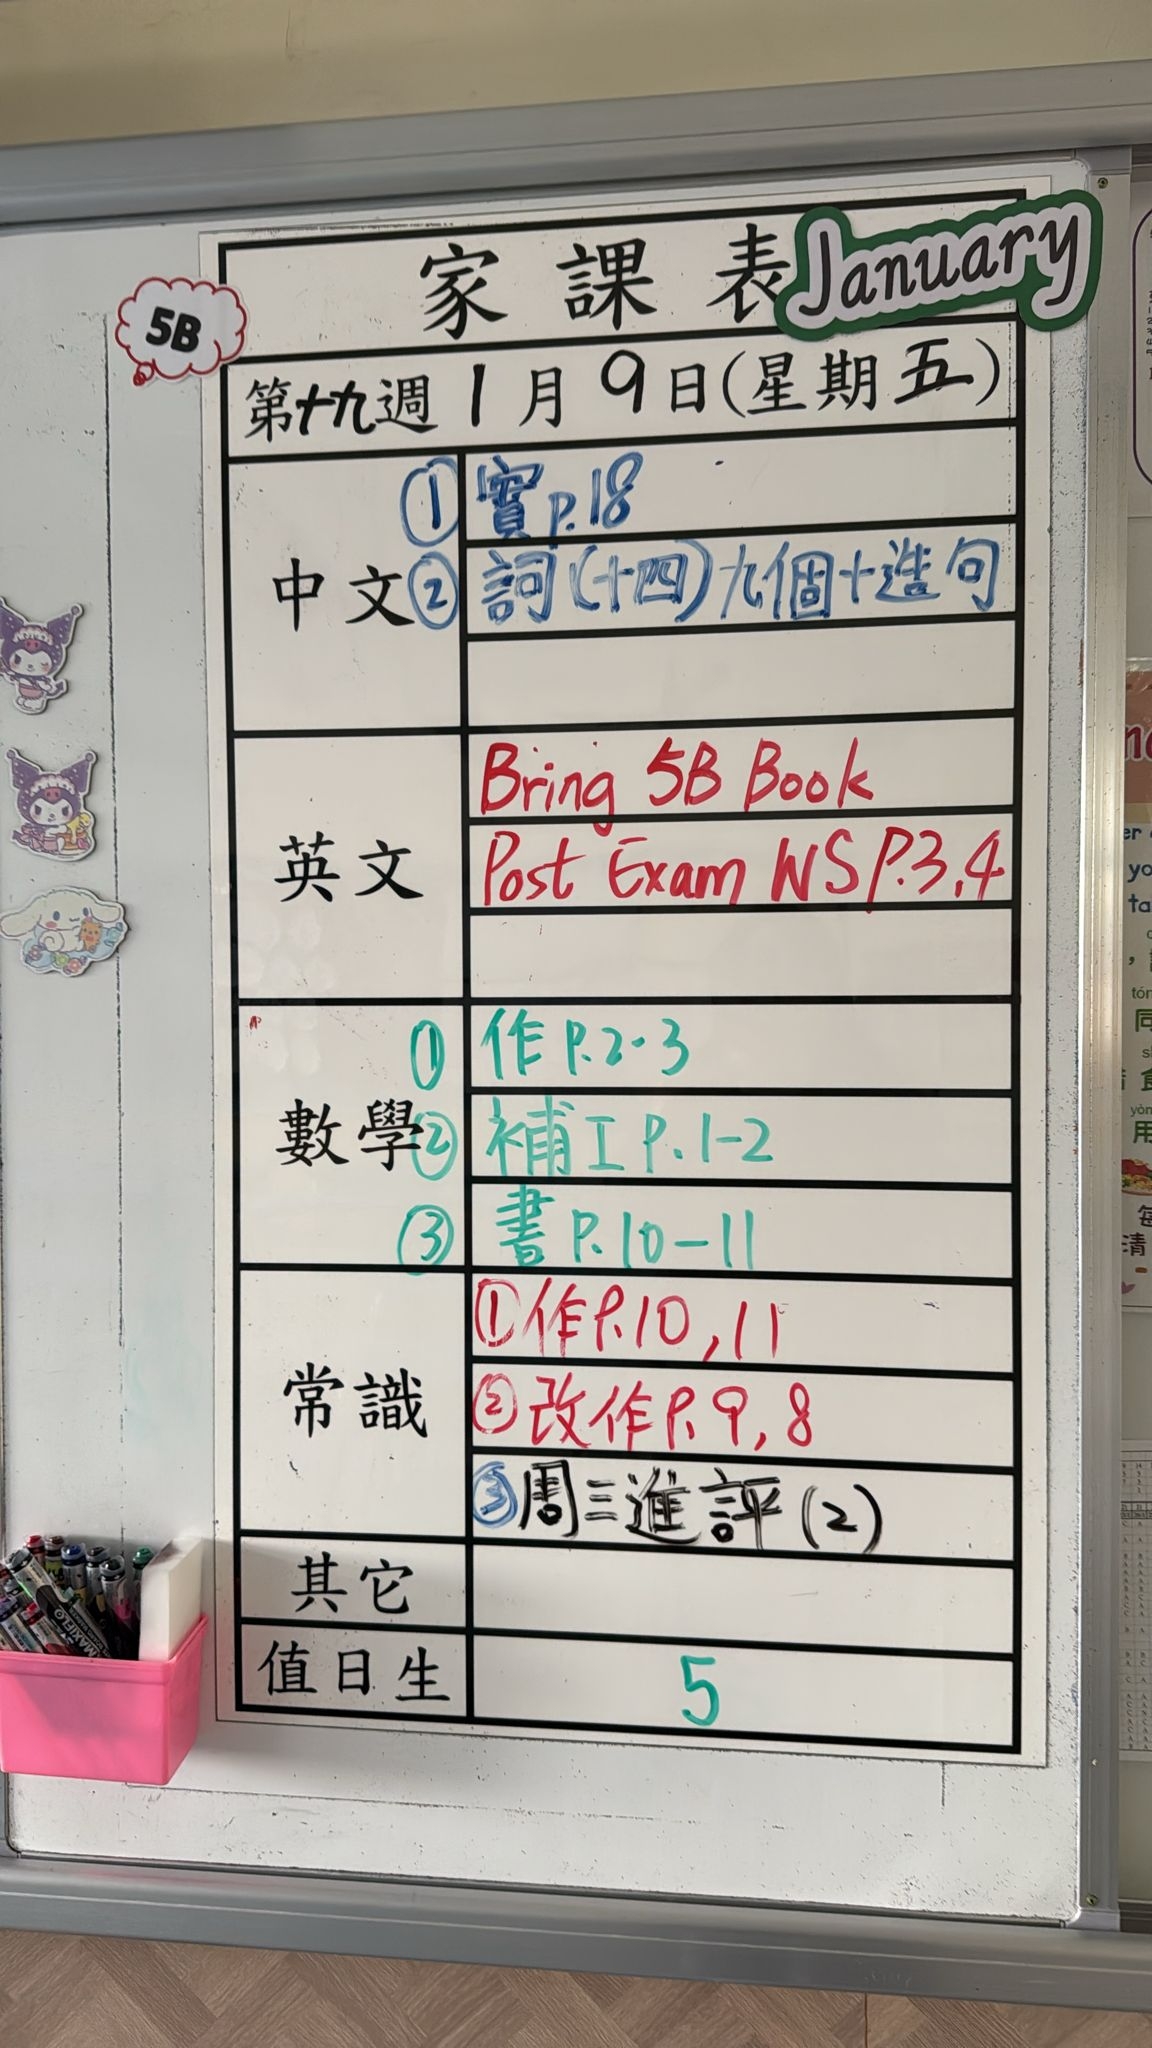 家課表
January
5B
第十九週 1月9日(星期五)
中文
① 實p.18
② 詞(十四)九個十造句
英文
Bring 5B Book
Post Exam WS P.3,4
數學
① 作P.2-3
② 補工P.1-2
③ 書P.10-11
常識
①作P.10,11
②改作P.9,8
③周三進評(2)
其它
值日生
5